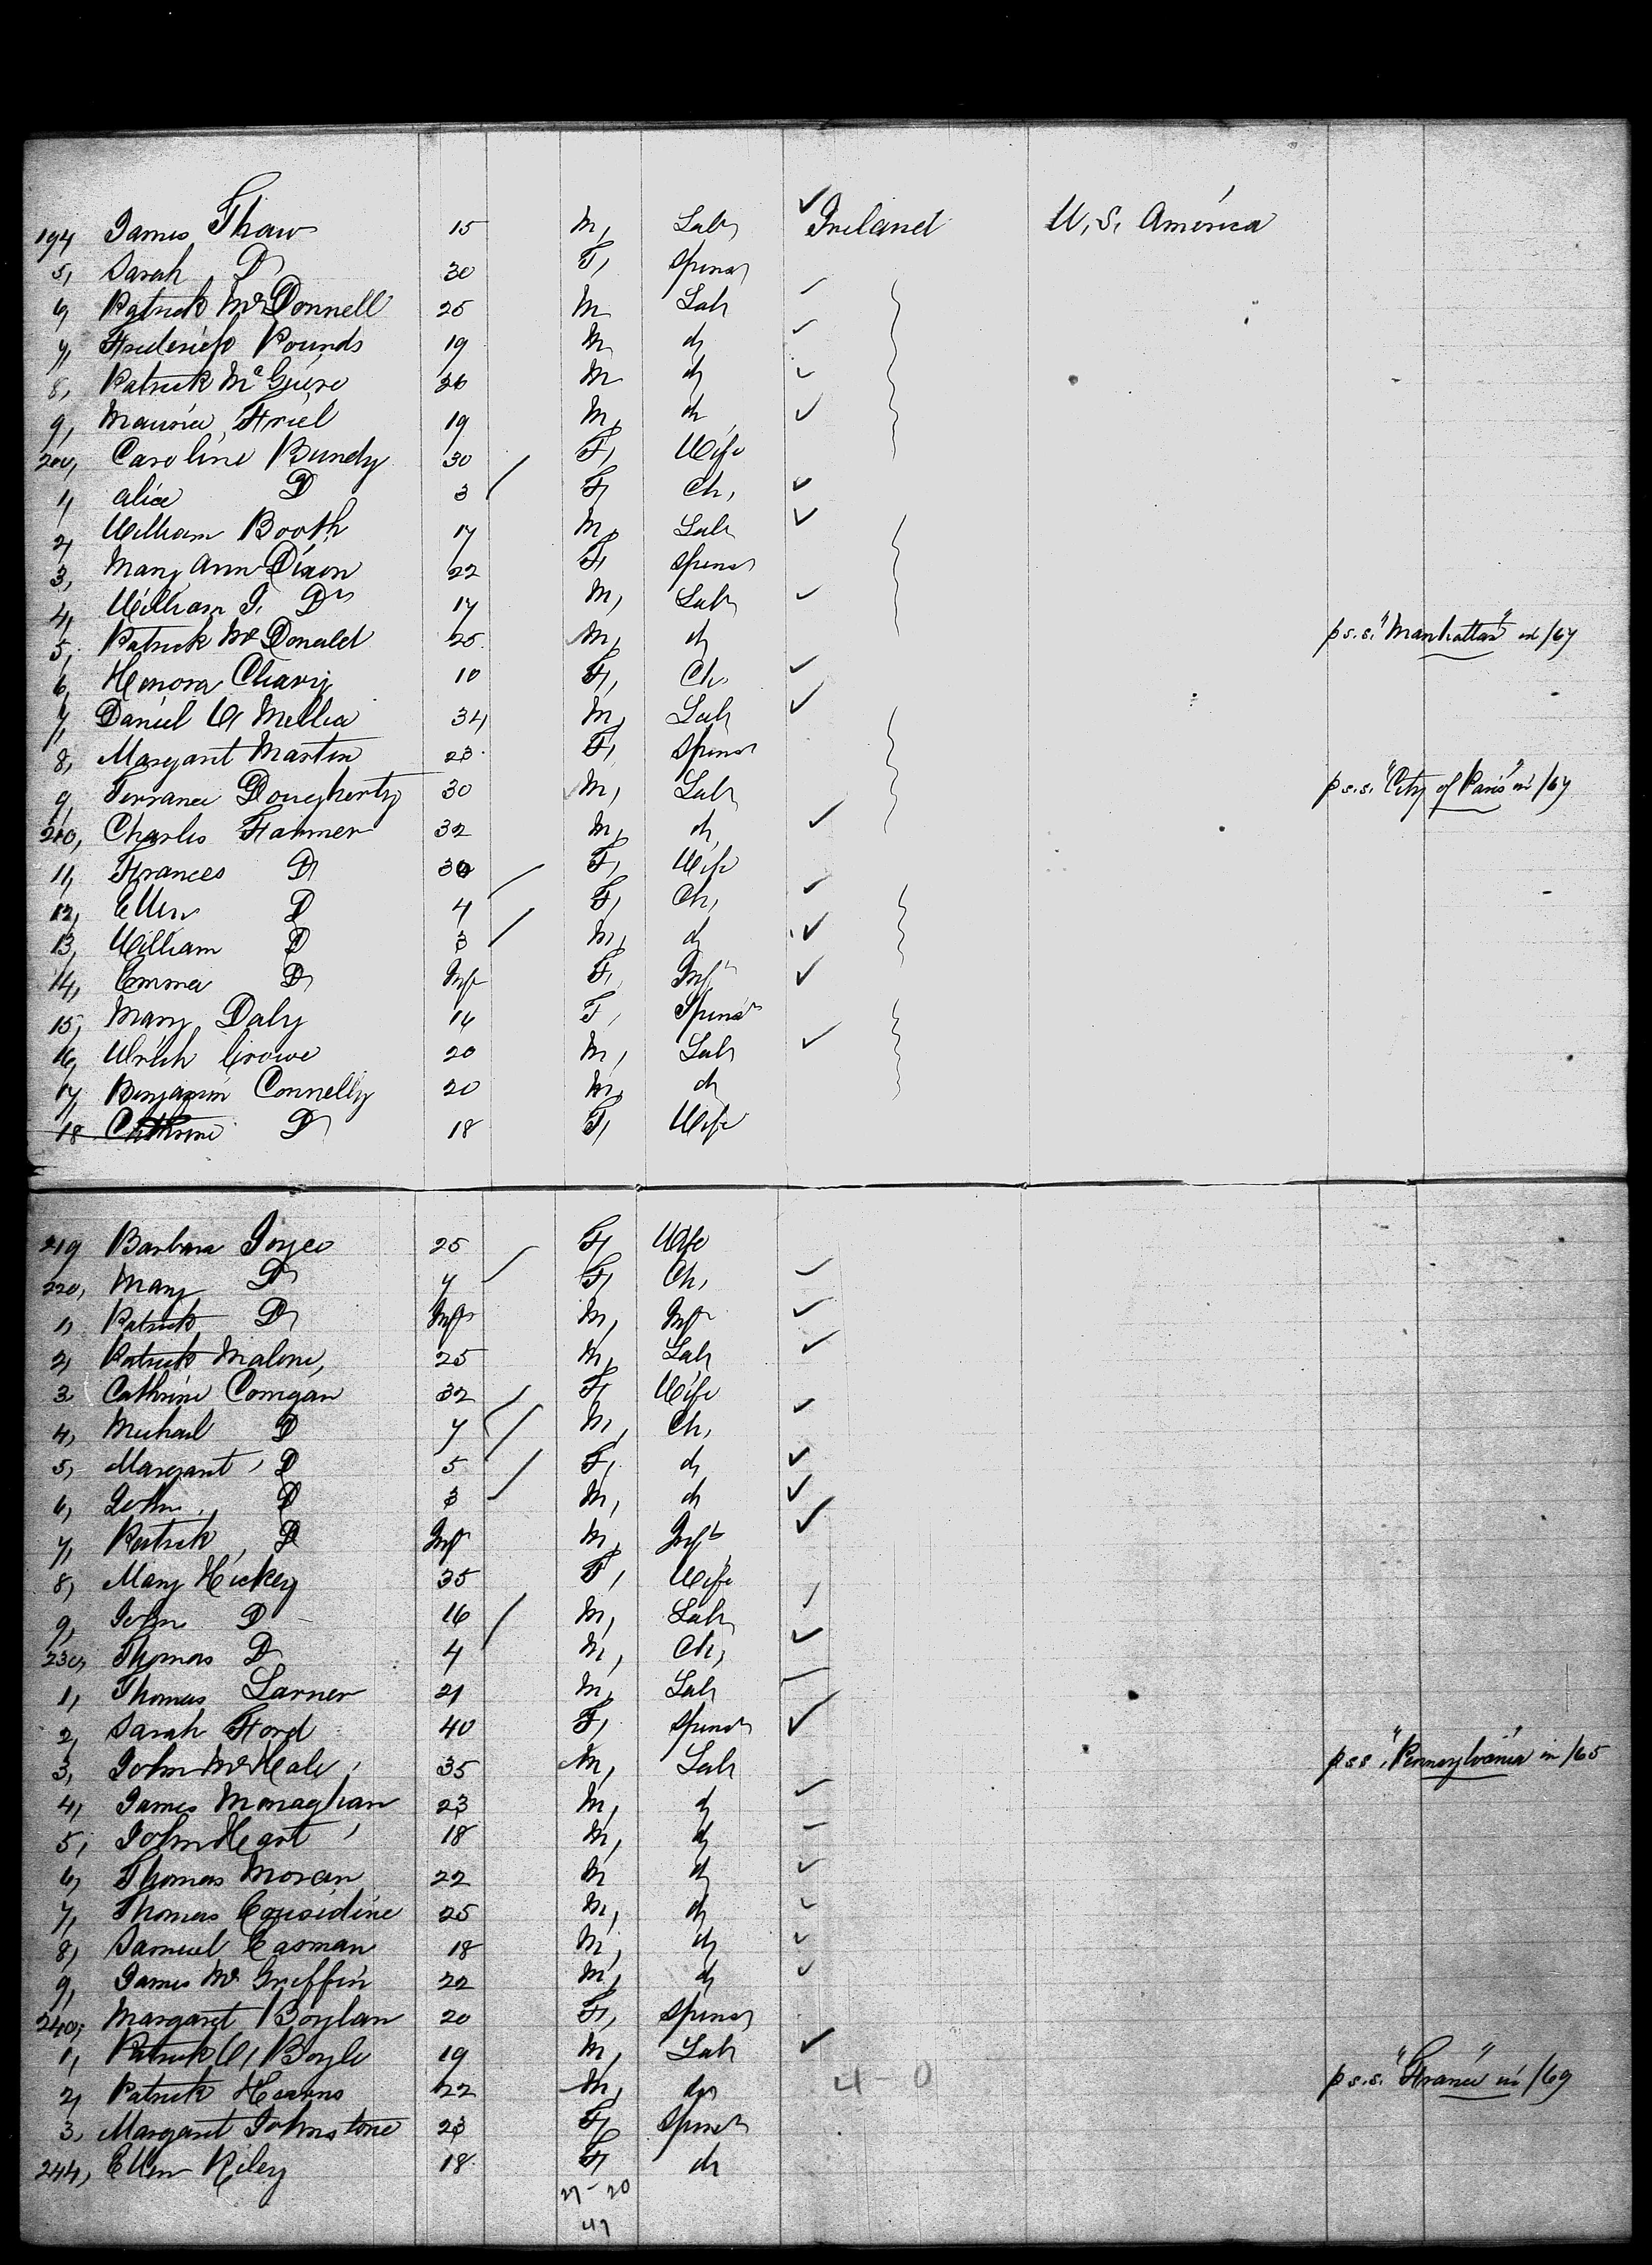 194 James Thaw 15 M, Labr Ireland U. S. America
5, Sarah Do 30 F, Spinsr
6, Patrick McDonnell 25 M Labr
7, Frederick Pounds 19 M do
8, Patrick McGuire 26 M do
9, Maurice Friel 19 M, do
200, Caroline Bundy 30 F, Wife
1, Alice Do 3 F, Ch,
2, William Booth 17 M, Labr
3, Mary Ann Dixon 22 F, Spinsr
4, William J. Do 17 M, Labr
5, Patrick McDonald 25 M, do p s.s. "Manhattan" in /67
6, Honora 10 F, Ch,
7, Daniel O'Mellia 34 M, Labr
8, Margaret Martin 23 F, Spinsr
9, Terrance Dougherty 30 M, Labr p s.s. "City of Paris" in /67
210, Charles Farmer 32 M, do
11, Frances Do 30 F, Wife
12, Ellen Do 4 F, Ch,
13, William Do 3 M, do
14, Emma Do Inft F, Inft
15, Mary Daly 16 F, Spinsr
16, Ulrich Crowe 20 M, Labr
17, Benjamin Connelly 20 M, do
18 Cathrine Do 18 F, Wife
219 Barbara Joyce 25 F, Wife
220, Mary Do 7 F, Ch,
1, Patrick Do Inft M, Inft
2, Patrick Malone, 25 M, Labr
3 Cathrine Corrigan 32 F, Wife
4, Michael Do 7 M, Ch,
5, Margaret Do 5 F, do
6, John Do 3 M, do
7, Patrick Do Inft M, Inft
8, Mary Hickey 35 F, Wife
9, John Do 16 M, Labr
230, Thomas Do 4 M, Ch,
1, Thomas Larner 21 M, Labr
2, Sarah Ford 40 F, Spinsr
3, John McHale 35 M, Labr p s.s. "Pennsylvania" in /65
4, James Monaghan 23 M, do
5, John Heart 18 M, do
6, Thomas Moran 22 M do
7, Thomas Considine 25 M, do
8, Samuel Easman 18 M, do
9, James McGriffin 22 M, do
240, Margaret Boylan 20 F, Spinsr
1, Patrick O'Boyle 19 M, Labr
2, Patrick Hearns 22 M, do 4-0 p s.s. "France" in /69
3, Margaret Johnstone 23 F, Spinsr
244, Ellen Riley 18 F, do
27-20
47